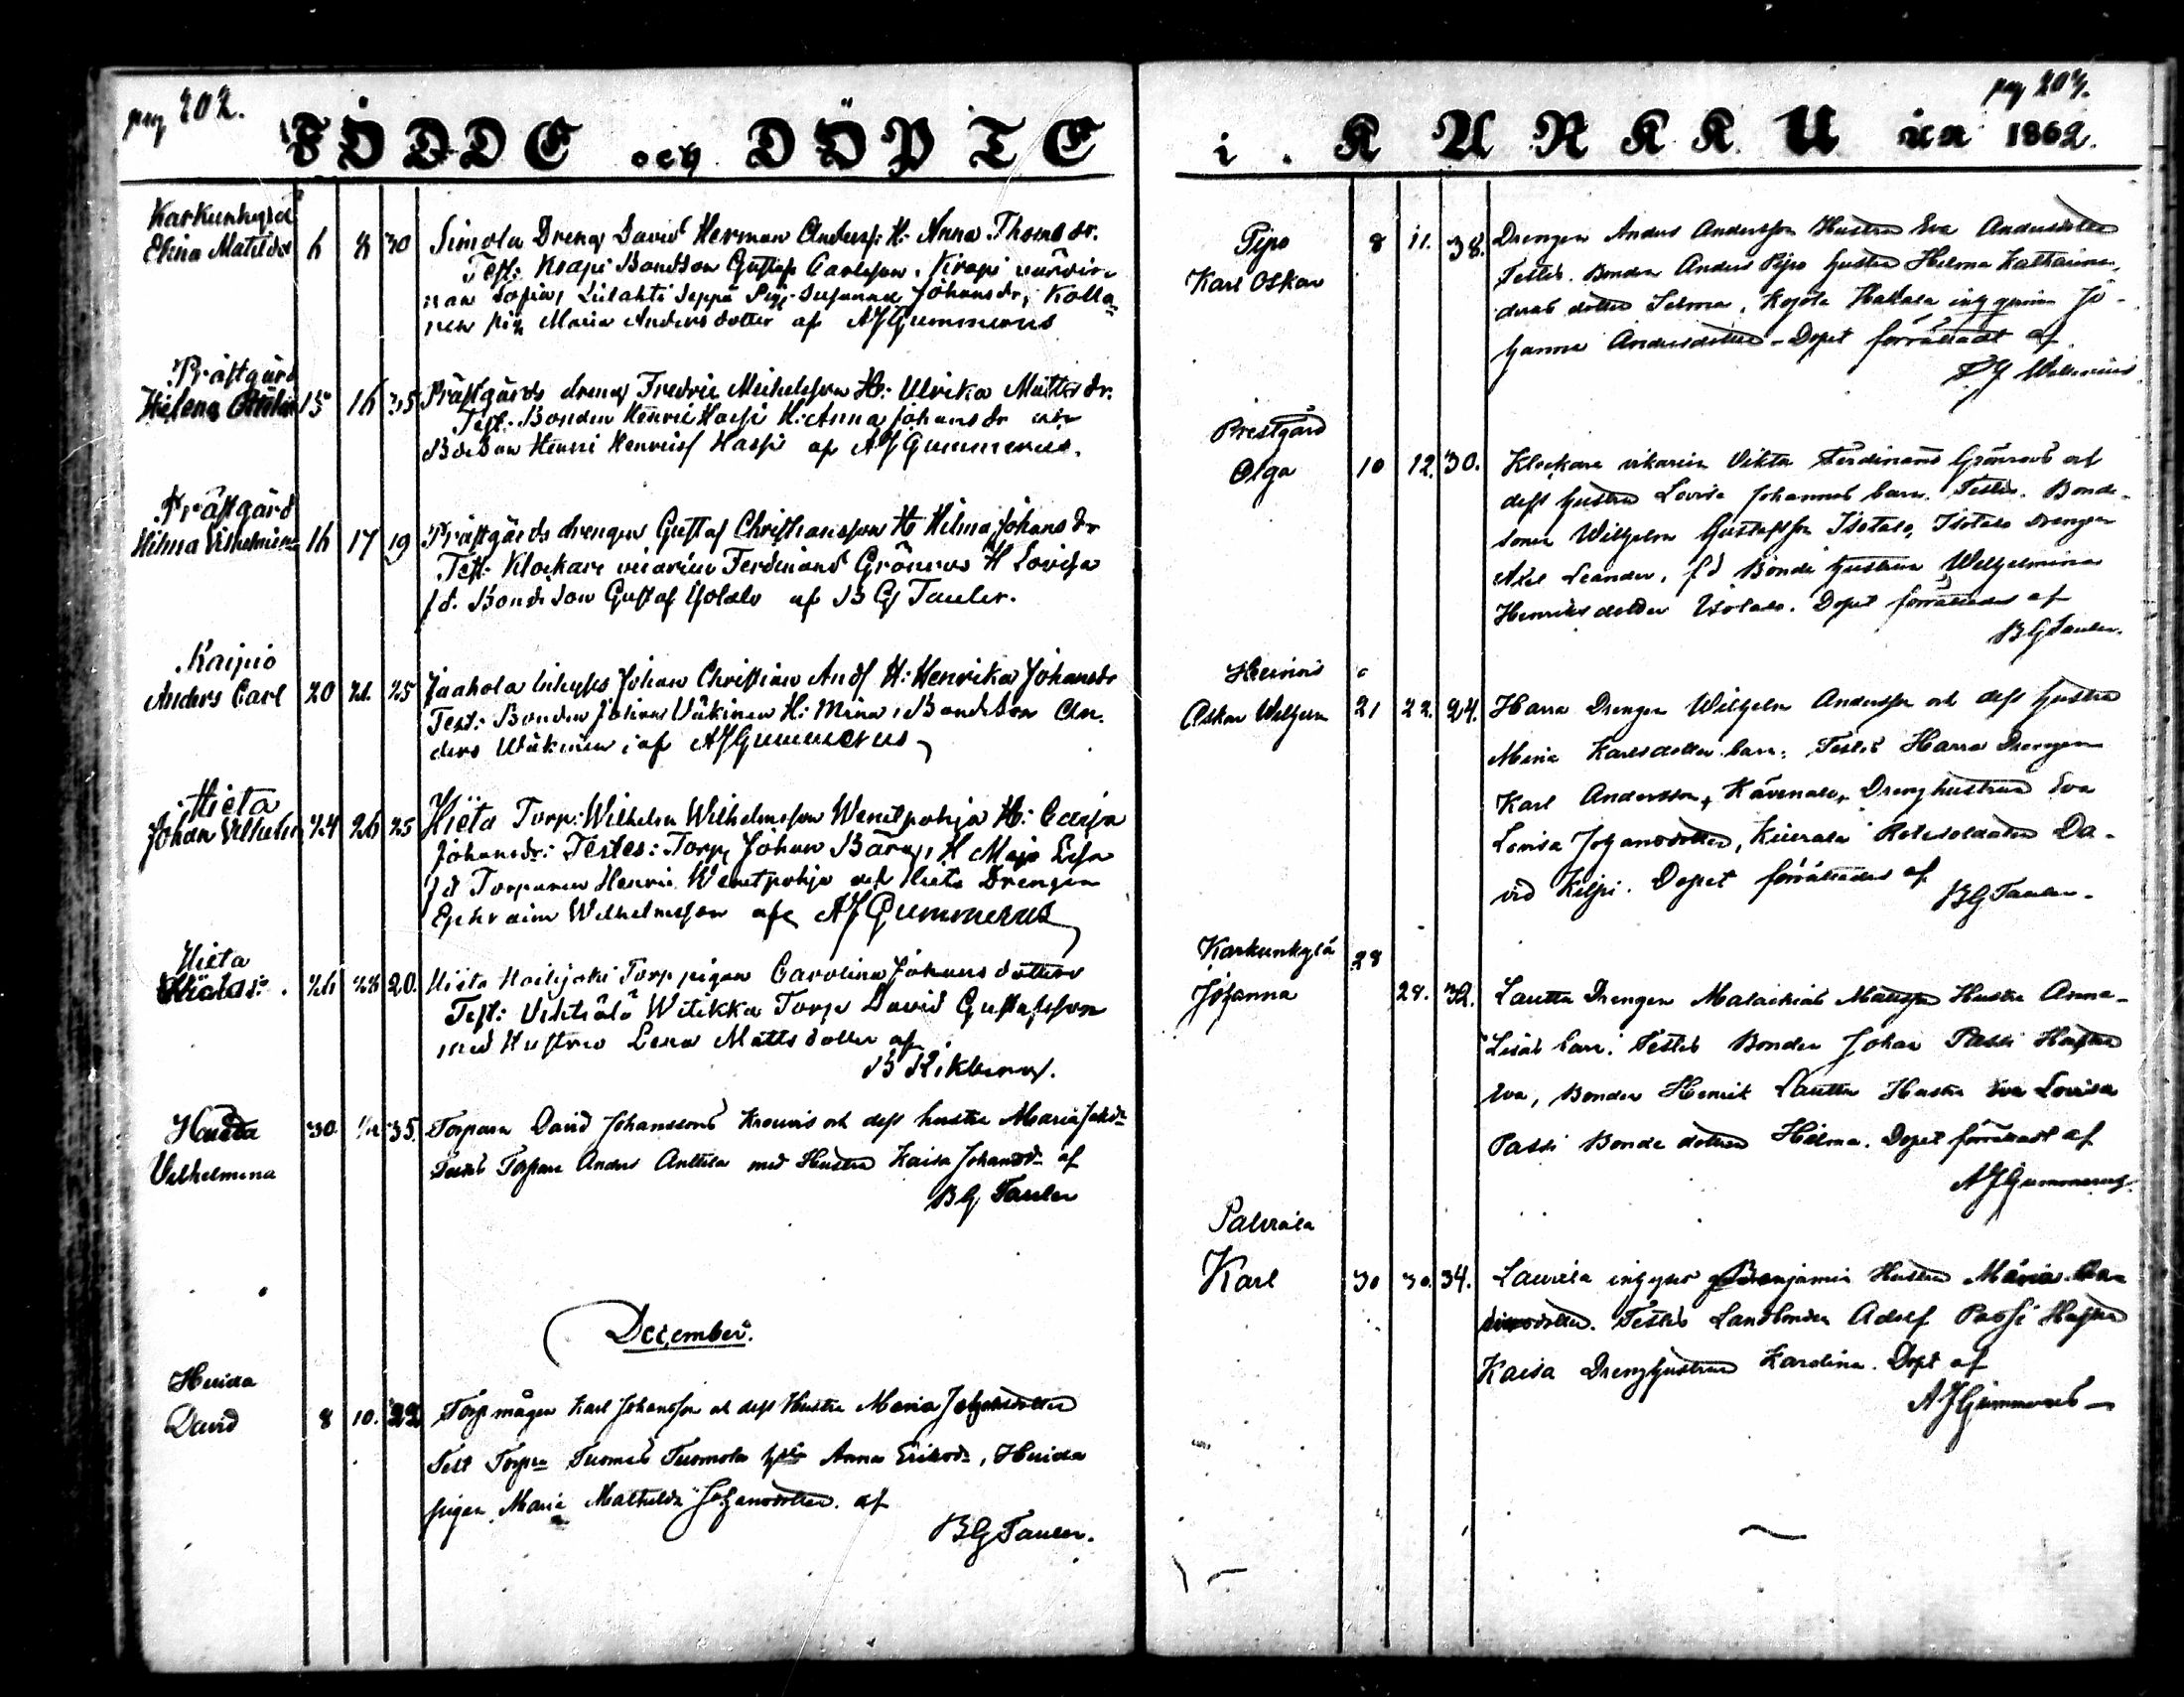 pag 202.
FÖDDE och DÖPTE
Karkunkylä
Elina Matilda 6 8 30 Simola Dreng David Herman Anderss: H: Anna Thoms dr.
Test: Krapi BondSon Gustaf Carlsson, Krapi
nan Sofia, Liilahti Seppä Pig: Susanna Johans dr, Kolla=
nen pig Maria Anders dotter af AJGummerus
Prästgård
Helena 15 16 35 Prästgårds dreng Fredric Michelsson H: Ulrika Matts dr.
Test: Bonden Henric Haspi H: Anna Johans dr
BdeSon Henric Henricss Haspi af AJGummerus.
Prästgård
Hilma Vilhelmina 16 17 19 Prästgårds drengen Gustaf Christiansson H Hilma Johans dr
Test: Klockare vicarien Ferdinand Grönroos H Lovisa
f d. Bonde Son Gustaf Isotalo af B G Tauler.
Kaipio
Anders Carl 20 21 25 Jaakola Inhyses Johan Christian Andss H: Henrika Johansdr
Test: Bonden Johan Uäkinen H: Mina, BondeSon An-
ders Uäkinen, af AJGummerus
Hieta
Johan Vilhelm 24 26 25 Hieta Torp: Wilhelm Wilhelmsson Wenetpohja H: Caisa
Johansdr: Testes: Torp Johan Bärg, H Maja Lisa
fd Torparen Henric Wenetpohja och Hieta Drengen
Ephraim Wilhelmsson af AJGummerus
Hieta
26 28 20. Hieta Torp pigan Carolina Johans dotter
Test: Witikka Torp David Gustafsson
med Hustru Lena Matts dotter af
B Rikberg.
Huida 30 35. Torparen David Johanssons Krouvis och dess hustru Maria
Vilhelmina Testes Torpare Anders Anttila med Hustru Kaisa Johansdr af
B G Tauler
December.
Huida
David 8 10. 22 Torp mågen Karl Johansson och dess Hustru Maria
Test Torpn Tuomas Tuomola Anna Eriksdr, Huida
pigan Maria Mathilda Johansdotter. af
B G Tauler.
pag 207.
i. KARKKU år 1862.
Pipo 8 11. 38. Drengen Anders Andersson Hustru Eva Andersdotter
Karl Oskar Testes. Bonden Anders Pipo hustru Helena Katharina,
deras dotter Selma, Kojola Hakala
hanna Andersdotter. Dopet förrättadt af
Prestgård
Olga 10 12. 30. Klockare vikarien Viktor Ferdinand Grönroos och
dess hustru Lovisa Johannes barn. Testes. Bonde-
sonen Wilhelm Gustafsson Isotalo, Isotalo drengen
Axel Leander, fd Bonde hustrun Wilhelmina
Henriks dotter Isotalo. Dopet förrättades af
B G Tauler.
Heinis
Oskar Wilhelm 21 22. 24. Harra Drengen Wilhelm Andersson och dess hustru
Maria Karlsdotter barn: Testes Harra Drengen
Karl Andersson, Drenghustrun Eva
Lovisa Johansdotter, Kiurala Rotesoldaten Da-
vid Kilpi. Dopet förrättades af B G Tauler.
Karkunkylä 28
Johanna 29. 32. Lautta Drengen Malachias Mattsson Hustru Anna-
Lisas barn: Testes Bonden Johan Passi Hustru
Eva, Bonden Henrik Lautta Hustru Eva Lovisa
Passi Bonde dotter Hilma. Dopet förrättadt af
AJGummerus.
Palviala
Karl 30 30. 34. Laurila inhyses Benjamin Hustru Maria
Testes Landbonden Adolf Passi Hustru
Kaisa Drenghustrun Karolina. Döpt af
AJGummerus